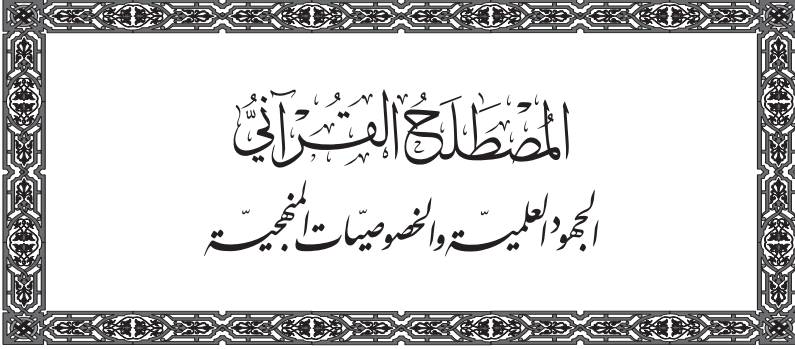 المُصْطَلَحُ القُرْآنيُّ
الجهود العلميّة والخصوصيّات المنهجيّة